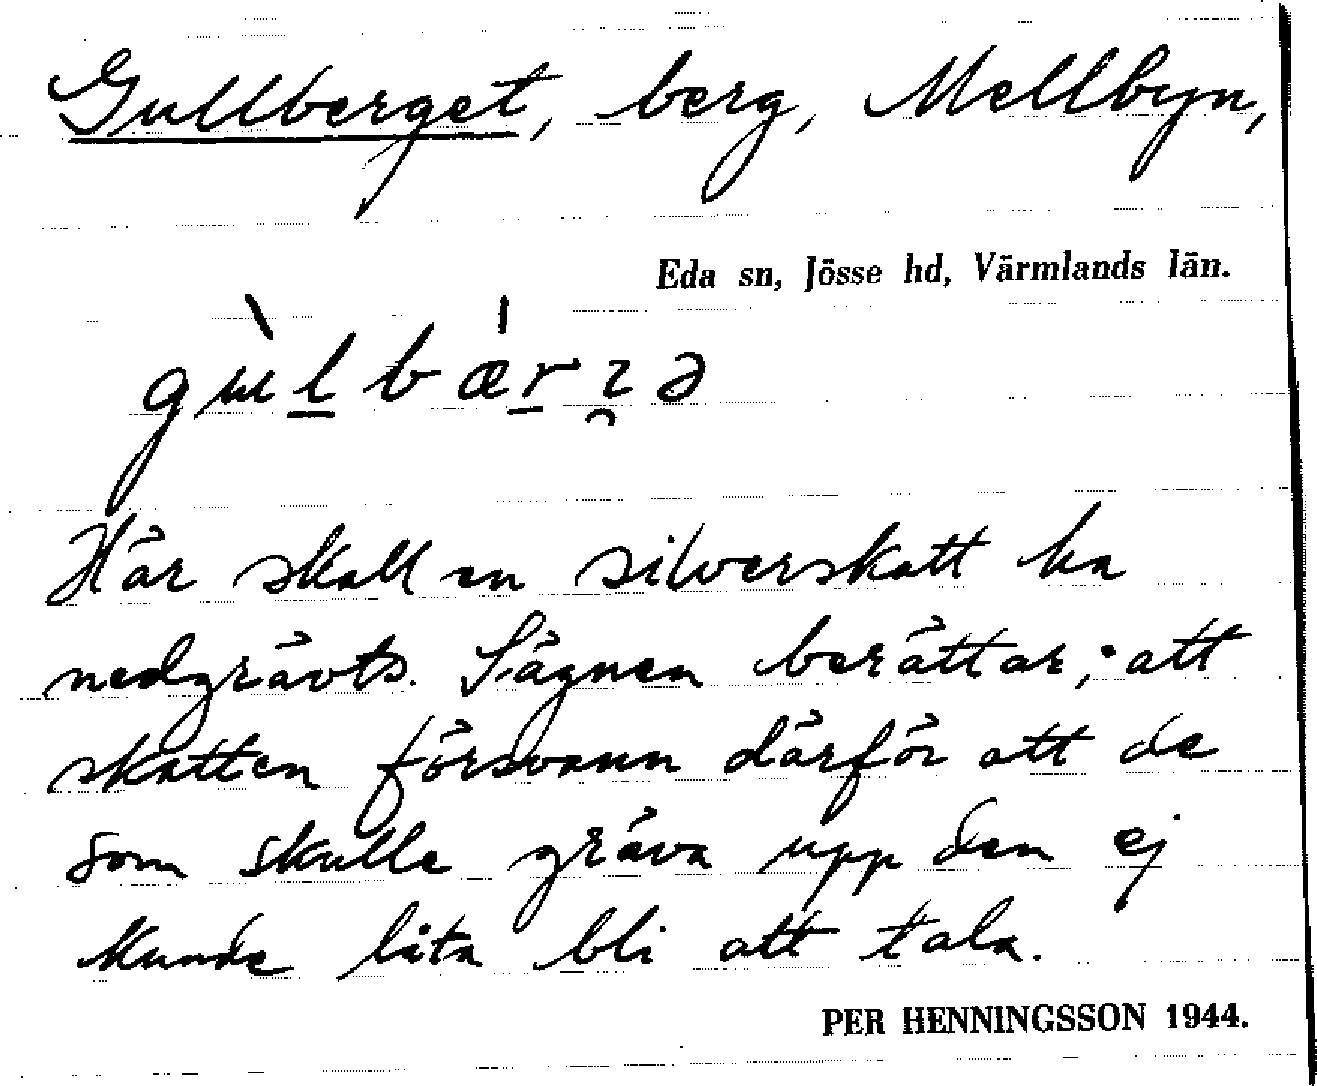 Gullberget, berg, Mellbyn,
Eda sn, Jösse hd, Värmlands län.
Här skall en silverskatt ha
nedgrävts. Sägnen berättar, att
skatten försvann därför att de
som skulle gräva upp den ej
kunde låta bli att tala.
PER HENNINGSSON 1944.